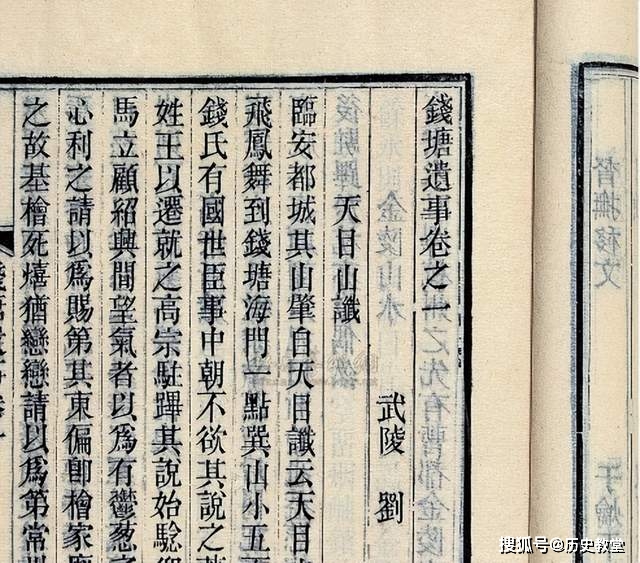 錢塘遺事卷之一
武陵 劉
天目山讖
臨安都城其山肇自天目讖云天目
飛鳳舞到錢塘海門一點巽山小五
錢氏有國世臣事中朝不欲其說之
姓王以遷就之高宗駐蹕其說始驗
馬立顧紹興間望氣者以爲有鬱葱
心利之請以爲賜第其東偏卽檜家
之故基檜死熺猶戀戀請以爲第常
搜狐号@历史教堂